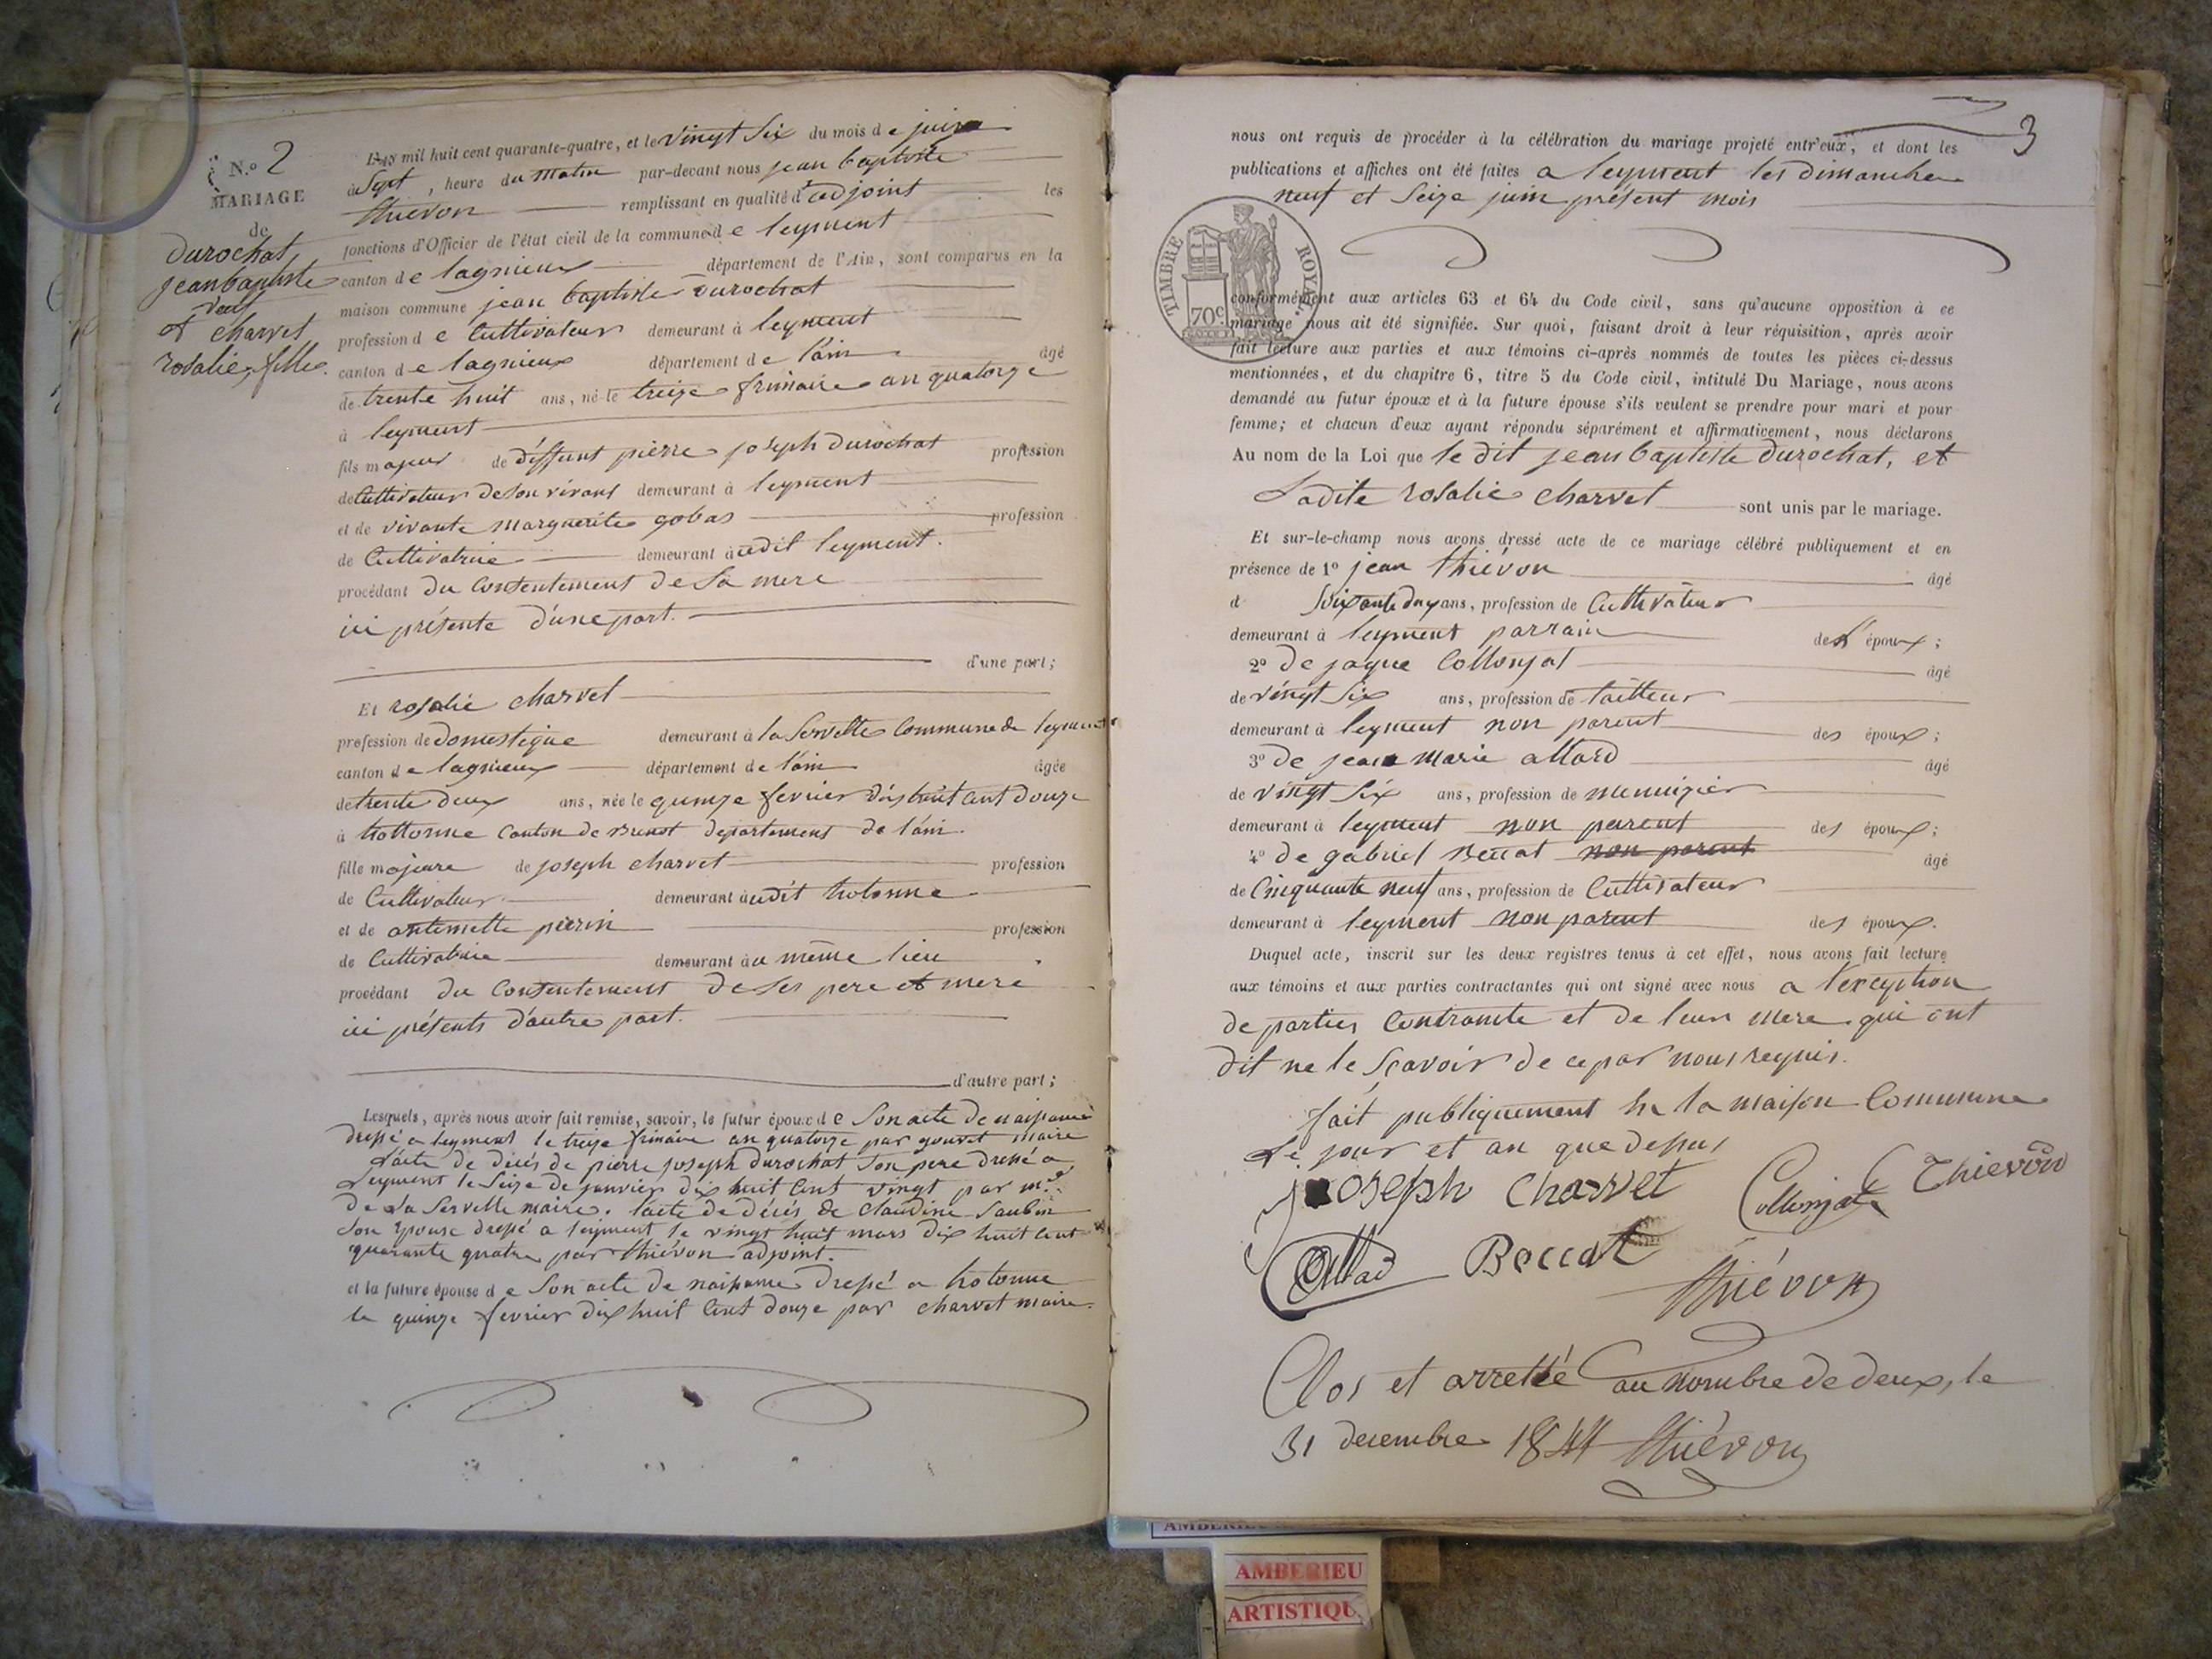 N.º 2
MARIAGE
de
durochat
jean baptiste
veuf
et charvet
rosalie, fille.
L'an mil huit cent quarante-quatre, et le vingt six du mois de juin
à Sept, heure du matin par-devant nous jean baptiste
thiévon remplissant en qualité d'adjoint les
fonctions d'Officier de l'état civil de la commune de leyment
canton de lagnieux département de l'Ain, sont comparus en la
maison commune jean baptiste durochat
profession de Cultivateur demeurant à leyment
canton de lagnieux département de l'ain âgé
de trente huit ans, né le treize frimaire an quatorze
à leyment
fils majeur de déffunt pierre joseph durochat profession
de Cultivateur de son vivant demeurant à leyment
et de vivante marguerite gobas profession
de Cultivatrice demeurant audit leyment.
procédant du Consentement de Sa mere
ici présente d'une part.
d'une part;
Et rosalie charvet
profession de domestique demeurant à la Servette Commune de leyment
canton de lagnieux département de l'ain âgée
de trente deux ans, née le quinze fevrier dix huit cent douze
à hottonne Canton de Brenot departement de l'ain.
fille majeure de joseph charvet profession
de Cultivateur demeurant audit hotonne
et de antoinette pierin profession
de Cultivatrice demeurant au même lieu
procédant du Consentement de Ses pere et mere
ici présents d'autre part.
d'autre part;
Lesquels, après nous avoir fait remise, savoir, le futur époux de Son acte de naissance
dressé a leyment le treize frimaire an quatorze par gouvet maire
L'acte de décés de pierre joseph durochat Son pere dressé a
Leyment le Seize de janvier dix huit Cent vingt par mr
de La Servette maire. l'acte de décés de Claudine Saubin
Son Epouse dressé a leyment le vingt huit mars dix huit Cent
quarante quatre par thiévon adjoint.
et la future épouse de Son acte de naissance dressé a hotonne
le quinze fevrier dix huit Cent douze par charvet maire.
3
nous ont requis de procéder à la célébration du mariage projeté entr'eux, et dont les
publications et affiches ont été faites a leyment les dimanche
neuf et Seize juin présent mois
TIMBRE ROYAL
70 c.
conformément aux articles 63 et 64 du Code civil, sans qu'aucune opposition à ce
mariage nous ait été signifiée. Sur quoi, faisant droit à leur réquisition, après avoir
fait lecture aux parties et aux témoins ci-après nommés de toutes les pièces ci-dessus
mentionnées, et du chapitre 6, titre 5 du Code civil, intitulé Du Mariage, nous avons
demandé au futur époux et à la future épouse s'ils veulent se prendre pour mari et pour
femme; et chacun d'eux ayant répondu séparément et affirmativement, nous déclarons
Au nom de la Loi que le dit jean baptiste durochat, et
Ladite rosalie charvet sont unis par le mariage.
Et sur-le-champ nous avons dressé acte de ce mariage célébré publiquement et en
présence de 1º jean thiévon âgé
d Soixante dix ans, profession de Cultivateur
demeurant à leyment parrain de l' époux;
2º de jaque Collonjat âgé
de vingt Six ans, profession de tailleur
demeurant à leyment non parent des époux;
3º de jean marie allard âgé
de vingt Six ans, profession de menuizier
demeurant à leyment non parent des époux;
4º de gabriel Beccat non parent âgé
de Cinquante neuf ans, profession de Cultivateur
demeurant à leyment non parent des époux.
Duquel acte, inscrit sur les deux registres tenus à cet effet, nous avons fait lecture
aux témoins et aux parties contractantes qui ont signé avec nous a l'exception
de parties Contrante et de leur mere qui ont
dit ne le Sçavoir de ce par nous requis.
fait publiquement En la maison Commune
Le jour et an que dessus
joseph Charvet Collonjat Thievon
Allad Beccat
thiévon
Clos et arretté au nombre de deux, le
31 decembre 1844 thiévon
AMBERIEU
AMBERIEU
ARTISTIQU